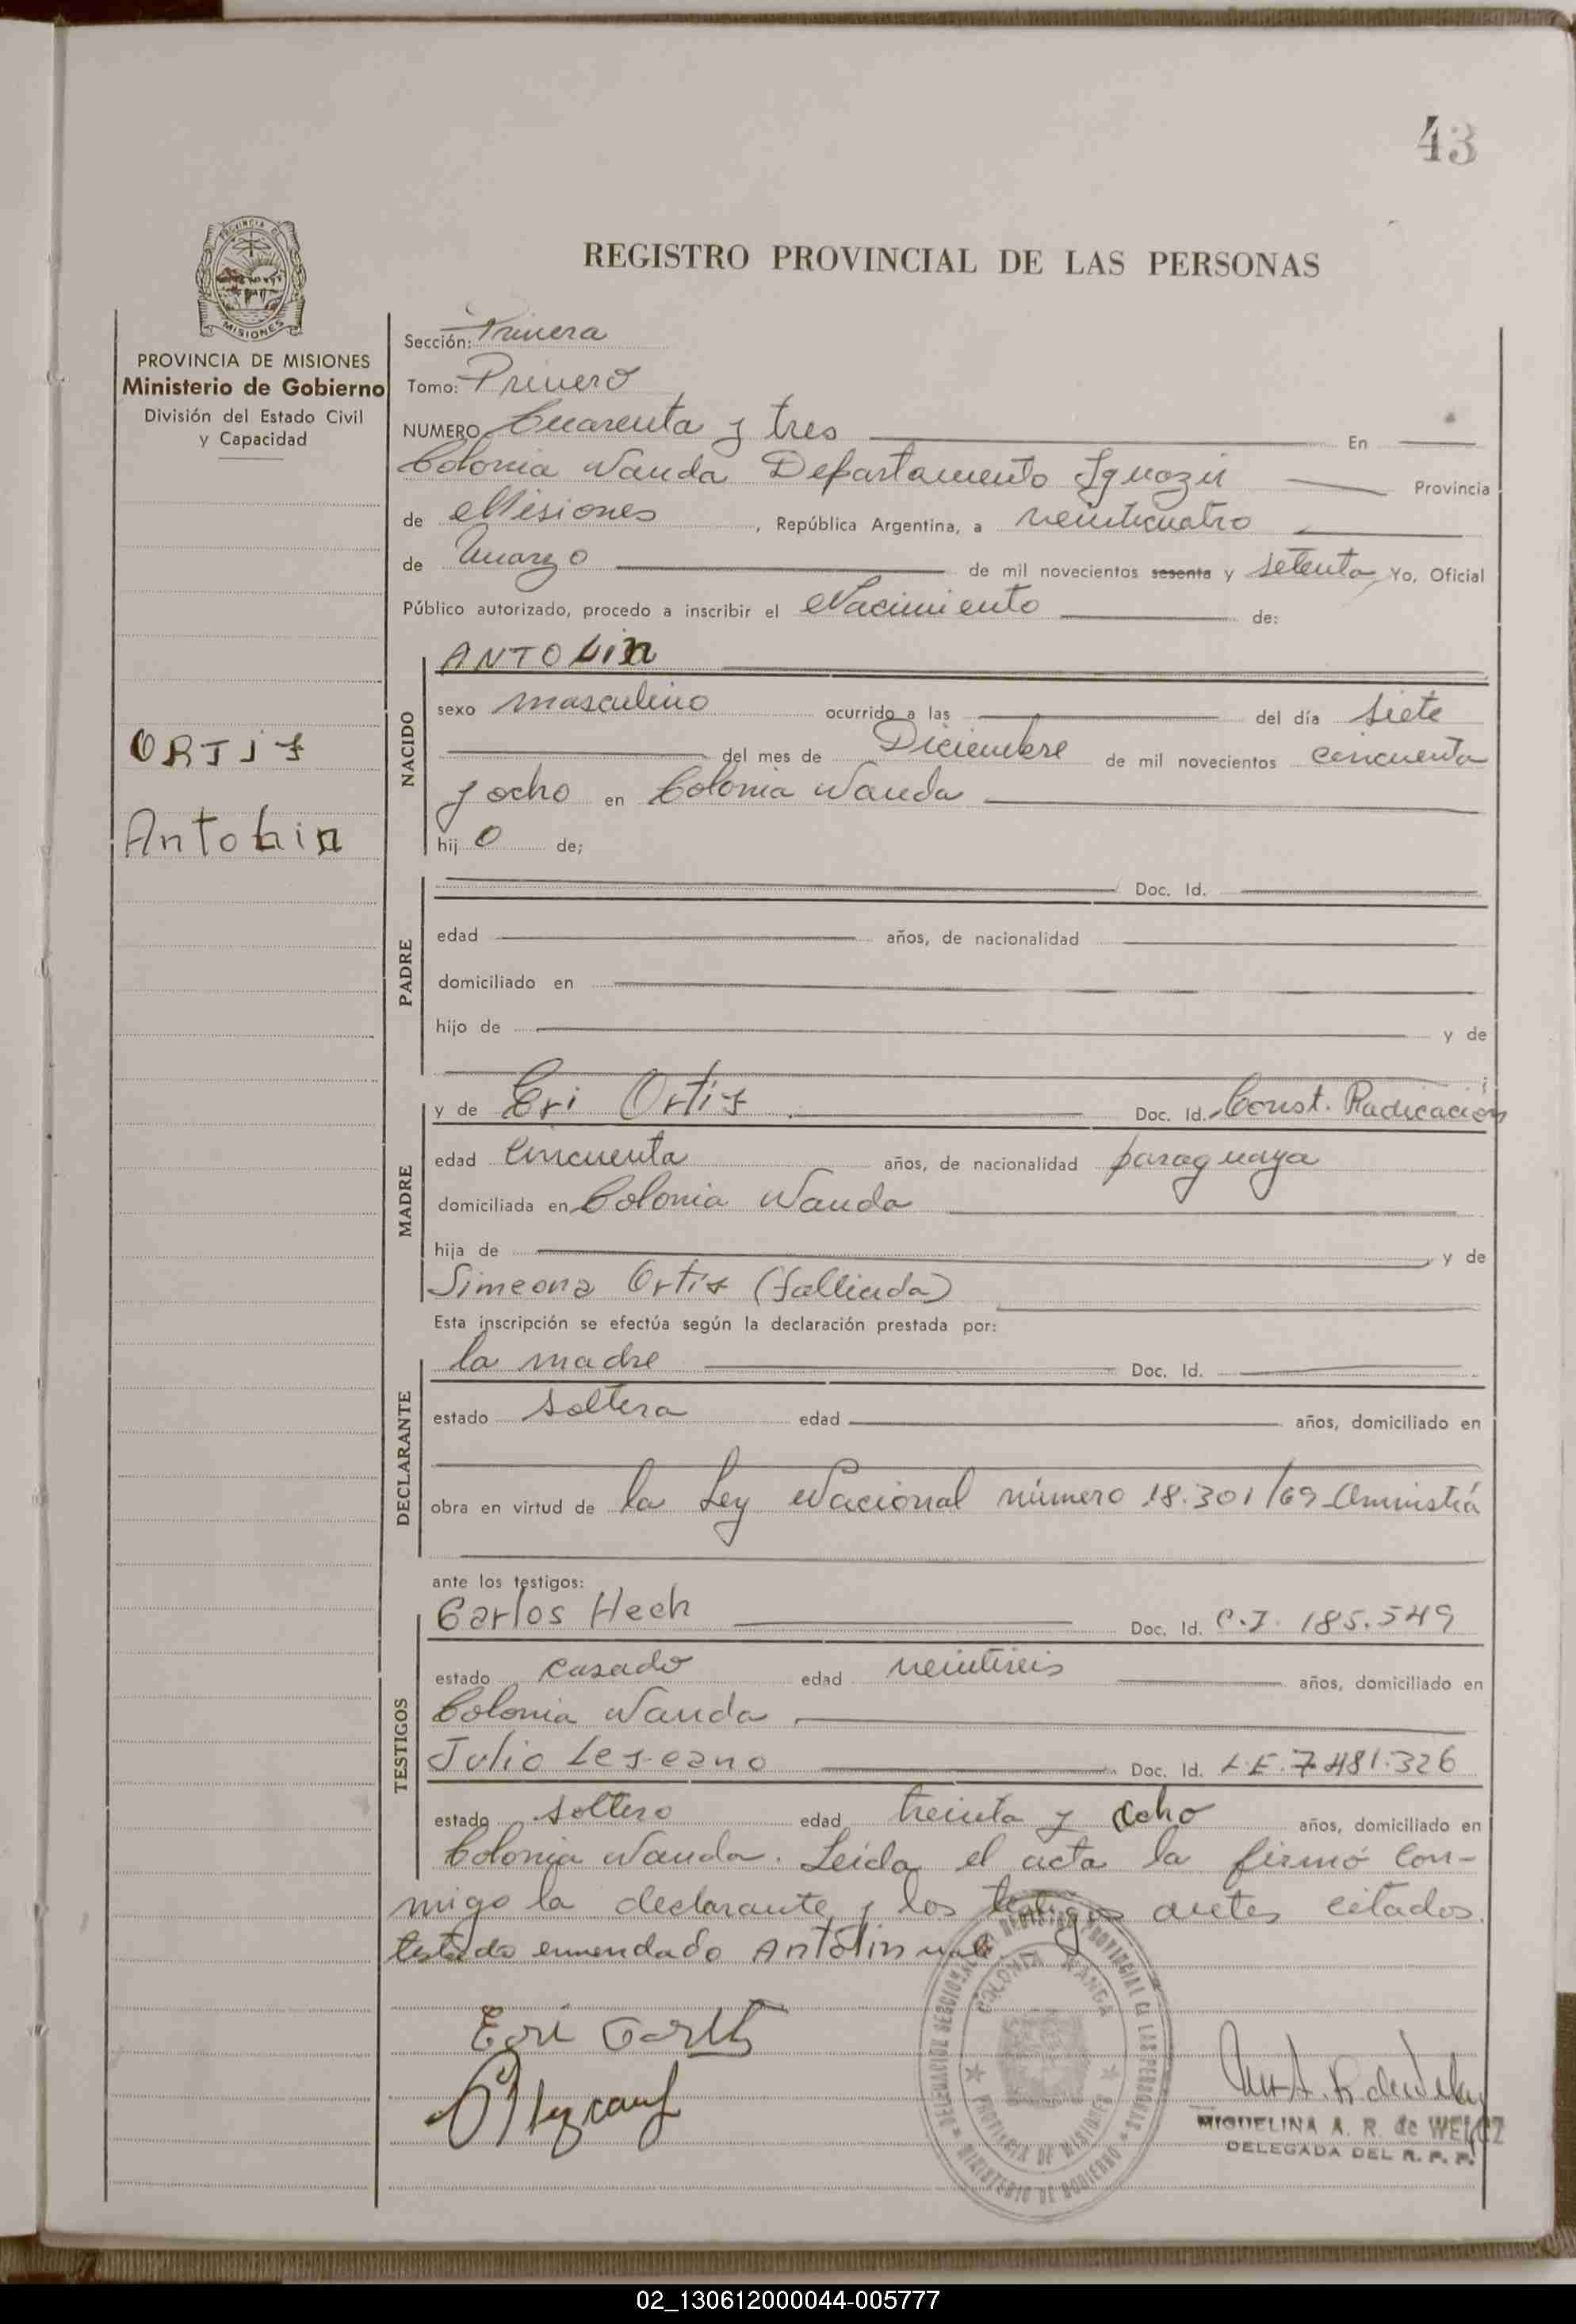 43
PROVINCIA DE
MISIONES
REGISTRO PROVINCIAL DE LAS PERSONAS
PROVINCIA DE MISIONES
Ministerio de Gobierno
División del Estado Civil
y Capacidad
Sección: Primera
Tomo: Primero
NUMERO Cuarenta y tres En
Colonia Wanda Departamento Iguazú Provincia
de Misiones, República Argentina, a veinticuatro
de Marzo de mil novecientos sesenta y setenta, Yo, Oficial
Público autorizado, procedo a inscribir el Nacimiento de:
ORTIS
Antolin
NACIDO
ANTOLIN
sexo masculino ocurrido a las del día siete
del mes de Diciembre de mil novecientos cincuenta
y ocho en Colonia Wanda
hij o de;
PADRE
Doc. Id.
edad años, de nacionalidad
domiciliado en
hijo de y de
MADRE
y de Eri Ortis Doc. Id. Const. Radicación
edad Cincuenta años, de nacionalidad paraguaya
domiciliada en Colonia Wanda
hija de y de
Simeona Ortis (fallecida)
Esta inscripción se efectúa según la declaración prestada por:
DECLARANTE
la madre Doc. Id.
estado soltera edad años, domiciliado en
obra en virtud de la Ley Nacional número 18.301/69 Amnistía
ante los testigos:
TESTIGOS
Carlos Hech Doc. Id. C.I. 185.549
estado casado edad veintiseis años, domiciliado en
Colonia Wanda
Julio Lescano Doc. Id. L.E. 7.481.326
estado soltero edad treinta y ocho años, domiciliado en
Colonia Wanda. Leída el acta la firmó con-
migo la declarante y los testigos antes citados.
testado enmendado Antolin vale.
Eri Ortis
DELEGACION SECCIONAL DEL REGISTRO PROVINCIAL de LAS PERSONAS
MINISTERIO DE GOBIERNO
COLONIA WANDA
PROVINCIA DE MISIONES
MIGUELINA A. R. de WELCZ
DELEGADA DEL R. P. P.
02_130612000044-005777